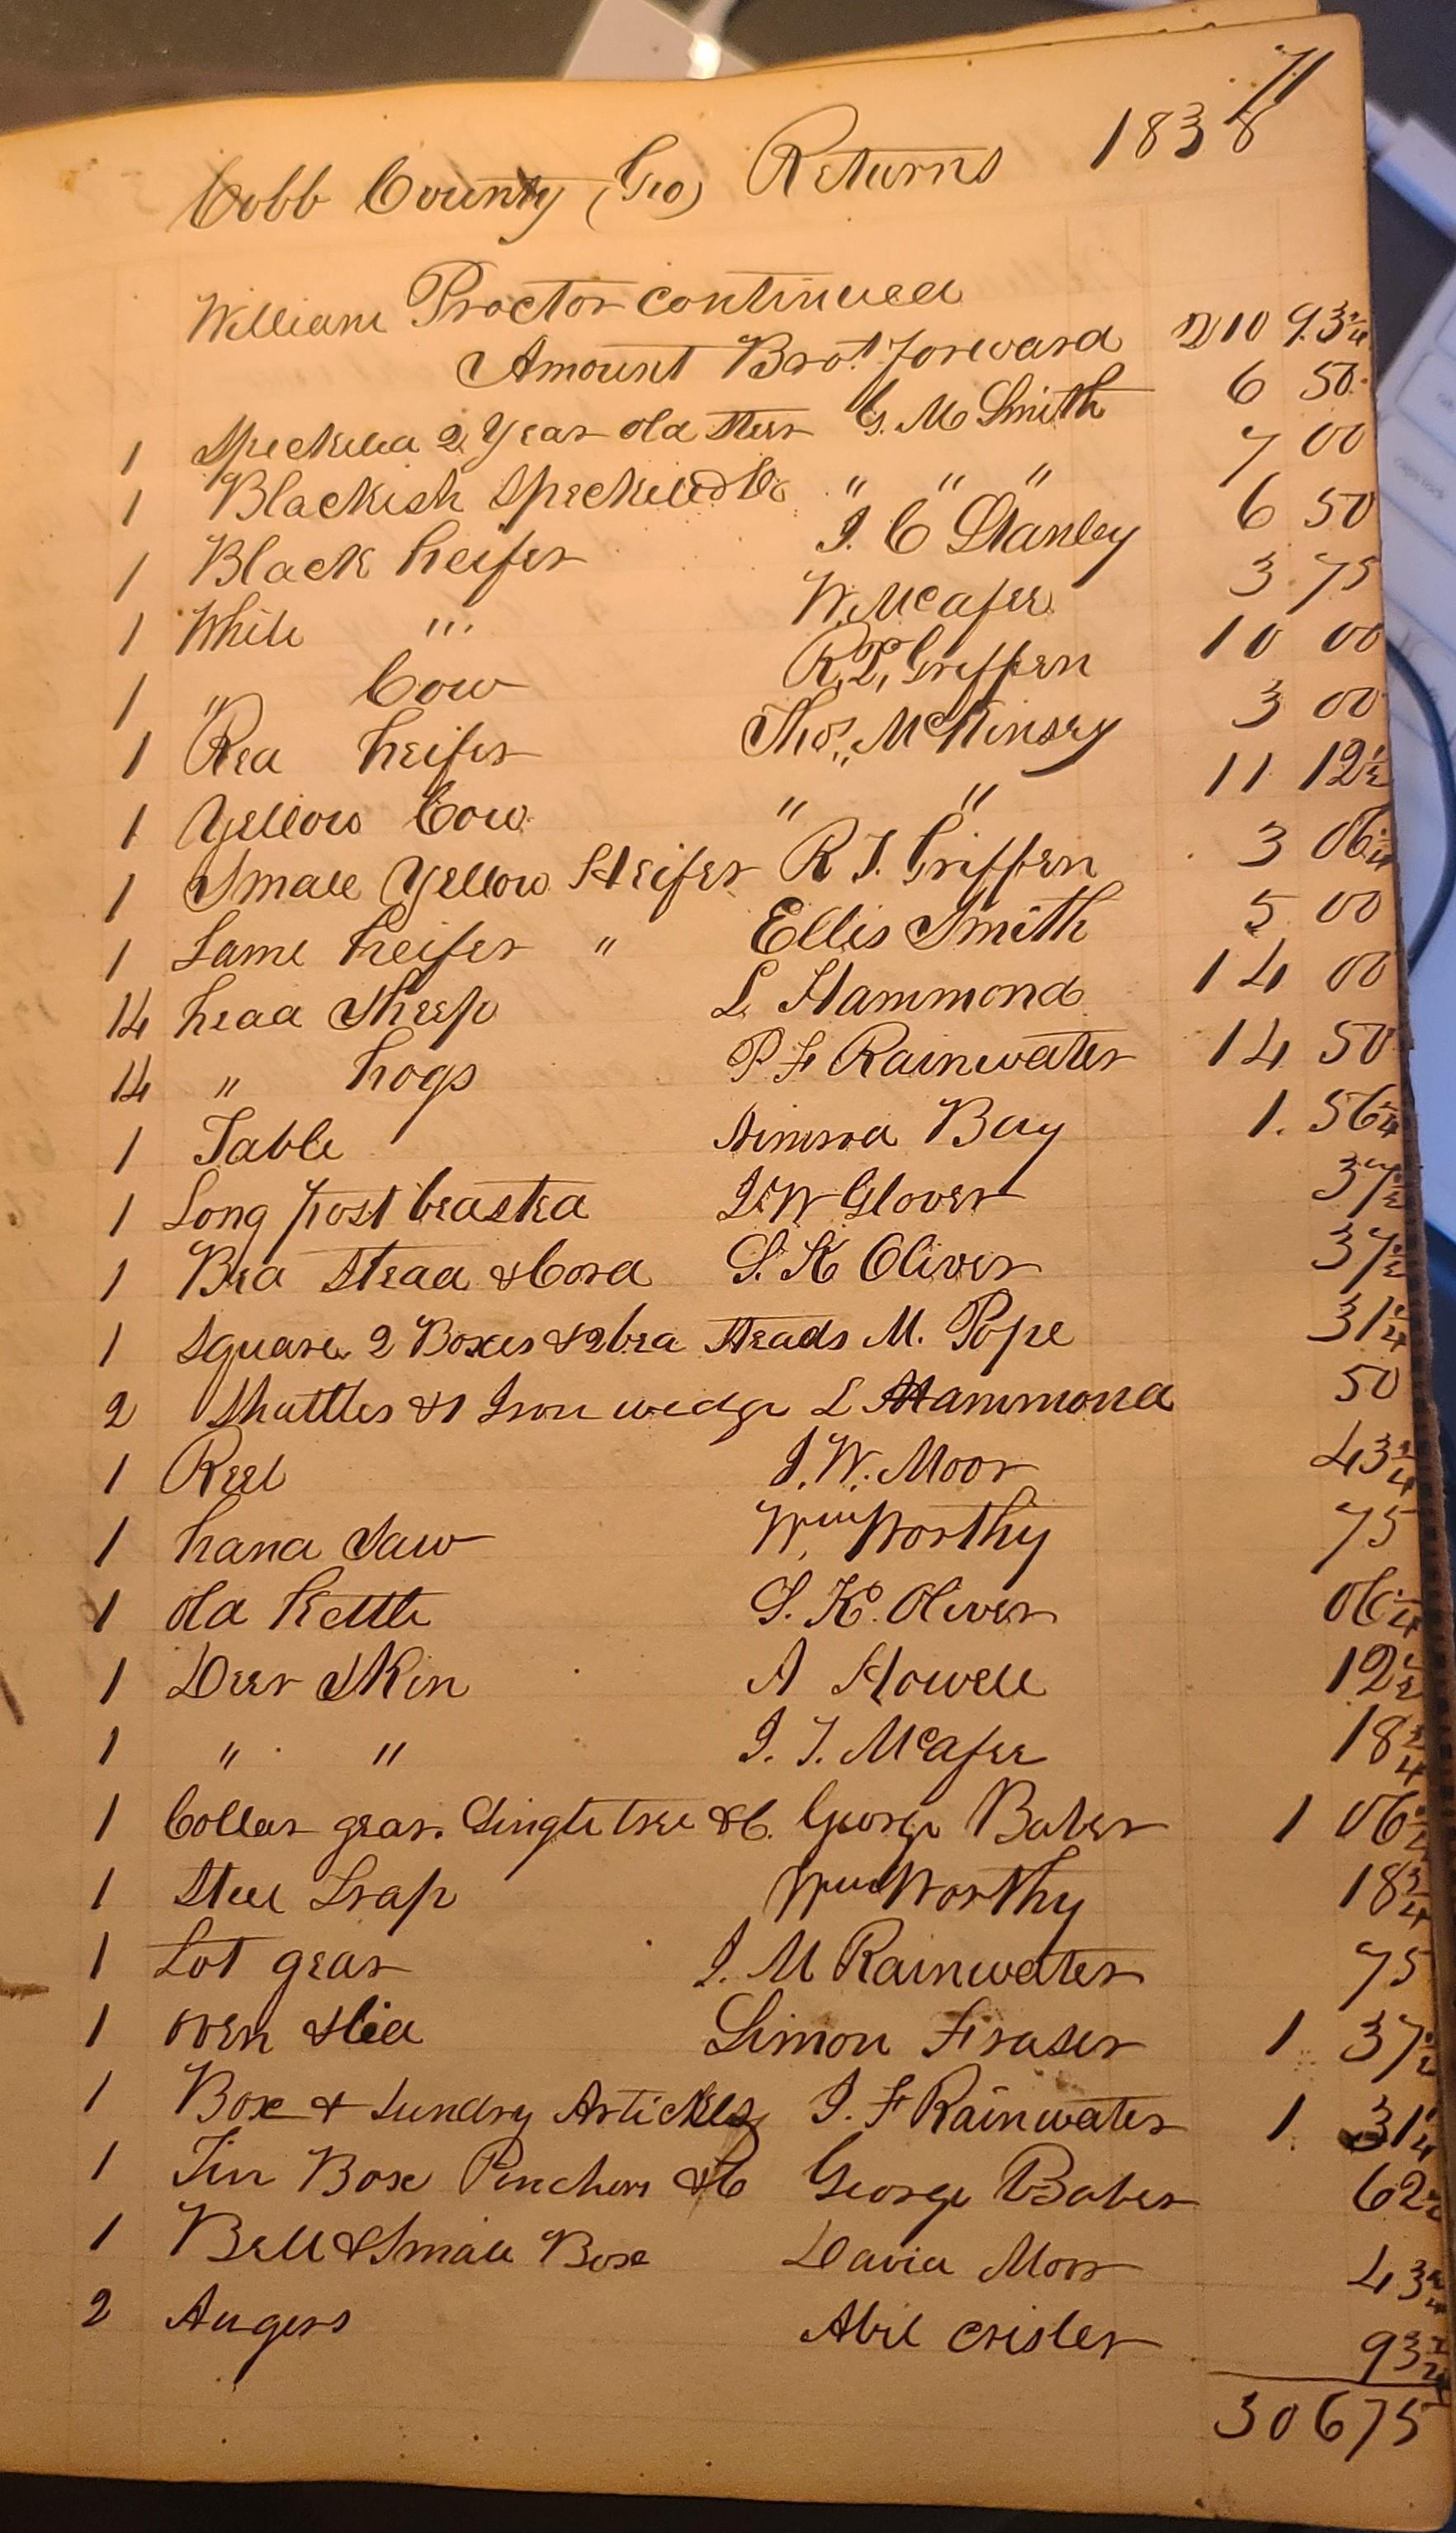 71
Cobb County (Geo) Returns 1838
William Proctor continued
Amount Brot. forward 210 93 3/4
1 Speckled 2 Year old Steer G. M Smith 6 50
1 Blackish Speckled Do " " " 7 00
1 Black heifer J. C Stanley 6 50
1 White " W. McAfee 3 75
1 " Cow R. T. Griffen 10 00
1 Red heifer Thos. McKinsey 3 00
1 Yellow Cow " " 11 12 1/2
1 Small Yellow Heifer R T. Griffen 3 06 1/4
1 Lame heifer " Ellis Smith 5 00
14 head Sheep L Hammond 14 00
14 " hogs P F Rainwater 14 50
1 Table Nimrod Bay 1. 56 1/4
1 Long post beasted J. W Glover 37 1/2
1 Bed Stead & Cord S. K Oliver 37 1/2
1 Square 2 Boxes & 2 bed Steads M. Pope 31 1/4
2 Shuttles & 1 Iron wedge L Hammond 50
1 Reel J. W. Moor 43 3/4
1 hand Saw Wm Worthy 75
1 old kettle S. K. Oliver 06 1/4
1 Deer Skin A Howell 12 1/2
1 " " J. T. McAfee 18 3/4
1 Collar gear. Singletree &C. George Baber 1 06 1/4
1 Steel Trap Wm Worthy 18 3/4
1 Lot gear J. M Rainwater 75
1 oven & lid Simon Fraser 1 37 1/2
1 Box & Sundry Artickles J. F Rainwater 1. 31 1/4
1 Tin Box Pinchers &C George Baber 62 1/2
1 Bell & Small Box David Moor 43 3/4
2 Augers Abel Crisler 93 3/4
306 75